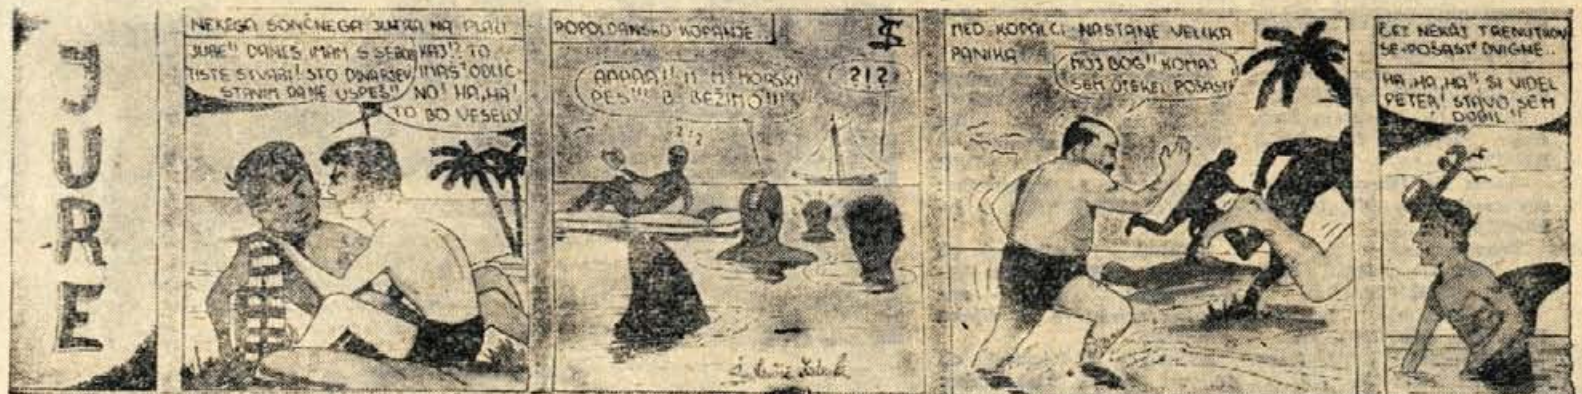 JURE
NEKEGA SONČNEGA JUTRA NA PLAŽI
JURE!! DANES IMAM S SEBOJ
TISTE STVARI! STO DINARJEV
STAVIM DA NE USPEŠ!!
KAJ!? TO
IMAŠ? ODLIČ-
NO! HA, HA!
TO BO VESELO!
POPOLDANSKO KOPANJE..
AAAAA!! M. MORSKI
PES!!! B. BEŽIMO!!!
?!?
?!?
MED KOPALCI NASTANE VELIKA
PANIKA
MOJ BOG!! KOMAJ
SEM UTEKEL POŠASTI
ČEZ NEKAJ TRENUTKOV
SE POŠAST DVIGNE..
HA, HA, HA!! SI VIDEL
PETER! STAVO SEM
DOBIL!!